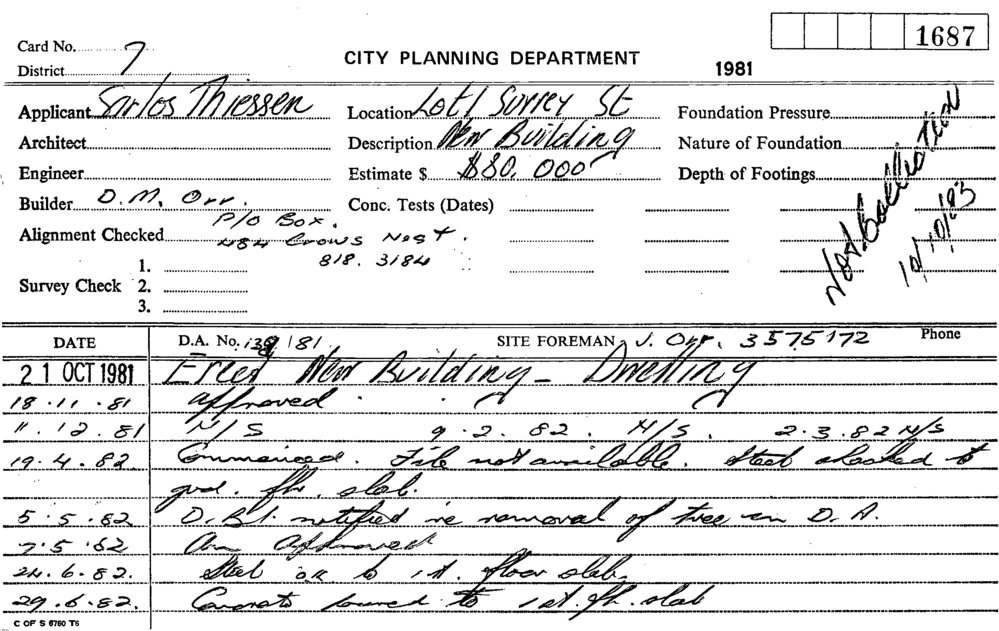 1687
Card No. 7
CITY PLANNING DEPARTMENT
1981
District
Applicant Sarlos Thiessen Location Lot 1 Surrey St Foundation Pressure
Architect Description New Building Nature of Foundation
Engineer Estimate $ $80,000 Depth of Footings
Builder D.M. Orr. Conc. Tests (Dates)
P/O Box.
Alignment Checked 484 Crows Nest.
818. 3184
1.
Survey Check 2.
3.
10/10/83
DATE D.A. No. /81 SITE FOREMAN J. Orr. 3575172 Phone
21 OCT 1981 Erect New Building - Dwelling
18.11.81 approved
11.12.81 N/S 9.2.82. N/S. 2.3.82 N/S
19.4.82. Commenced. File not available. Steel checked to
grd. flr. slab.
5.5.82 D.B.I. notified re removal of tree in D.A.
7.5.82 Am Approved
24.6.82. Steel OK to 1st. floor slab.
29.6.82. Concrete poured to 1st. flr. slab
C OF S 6760 T6